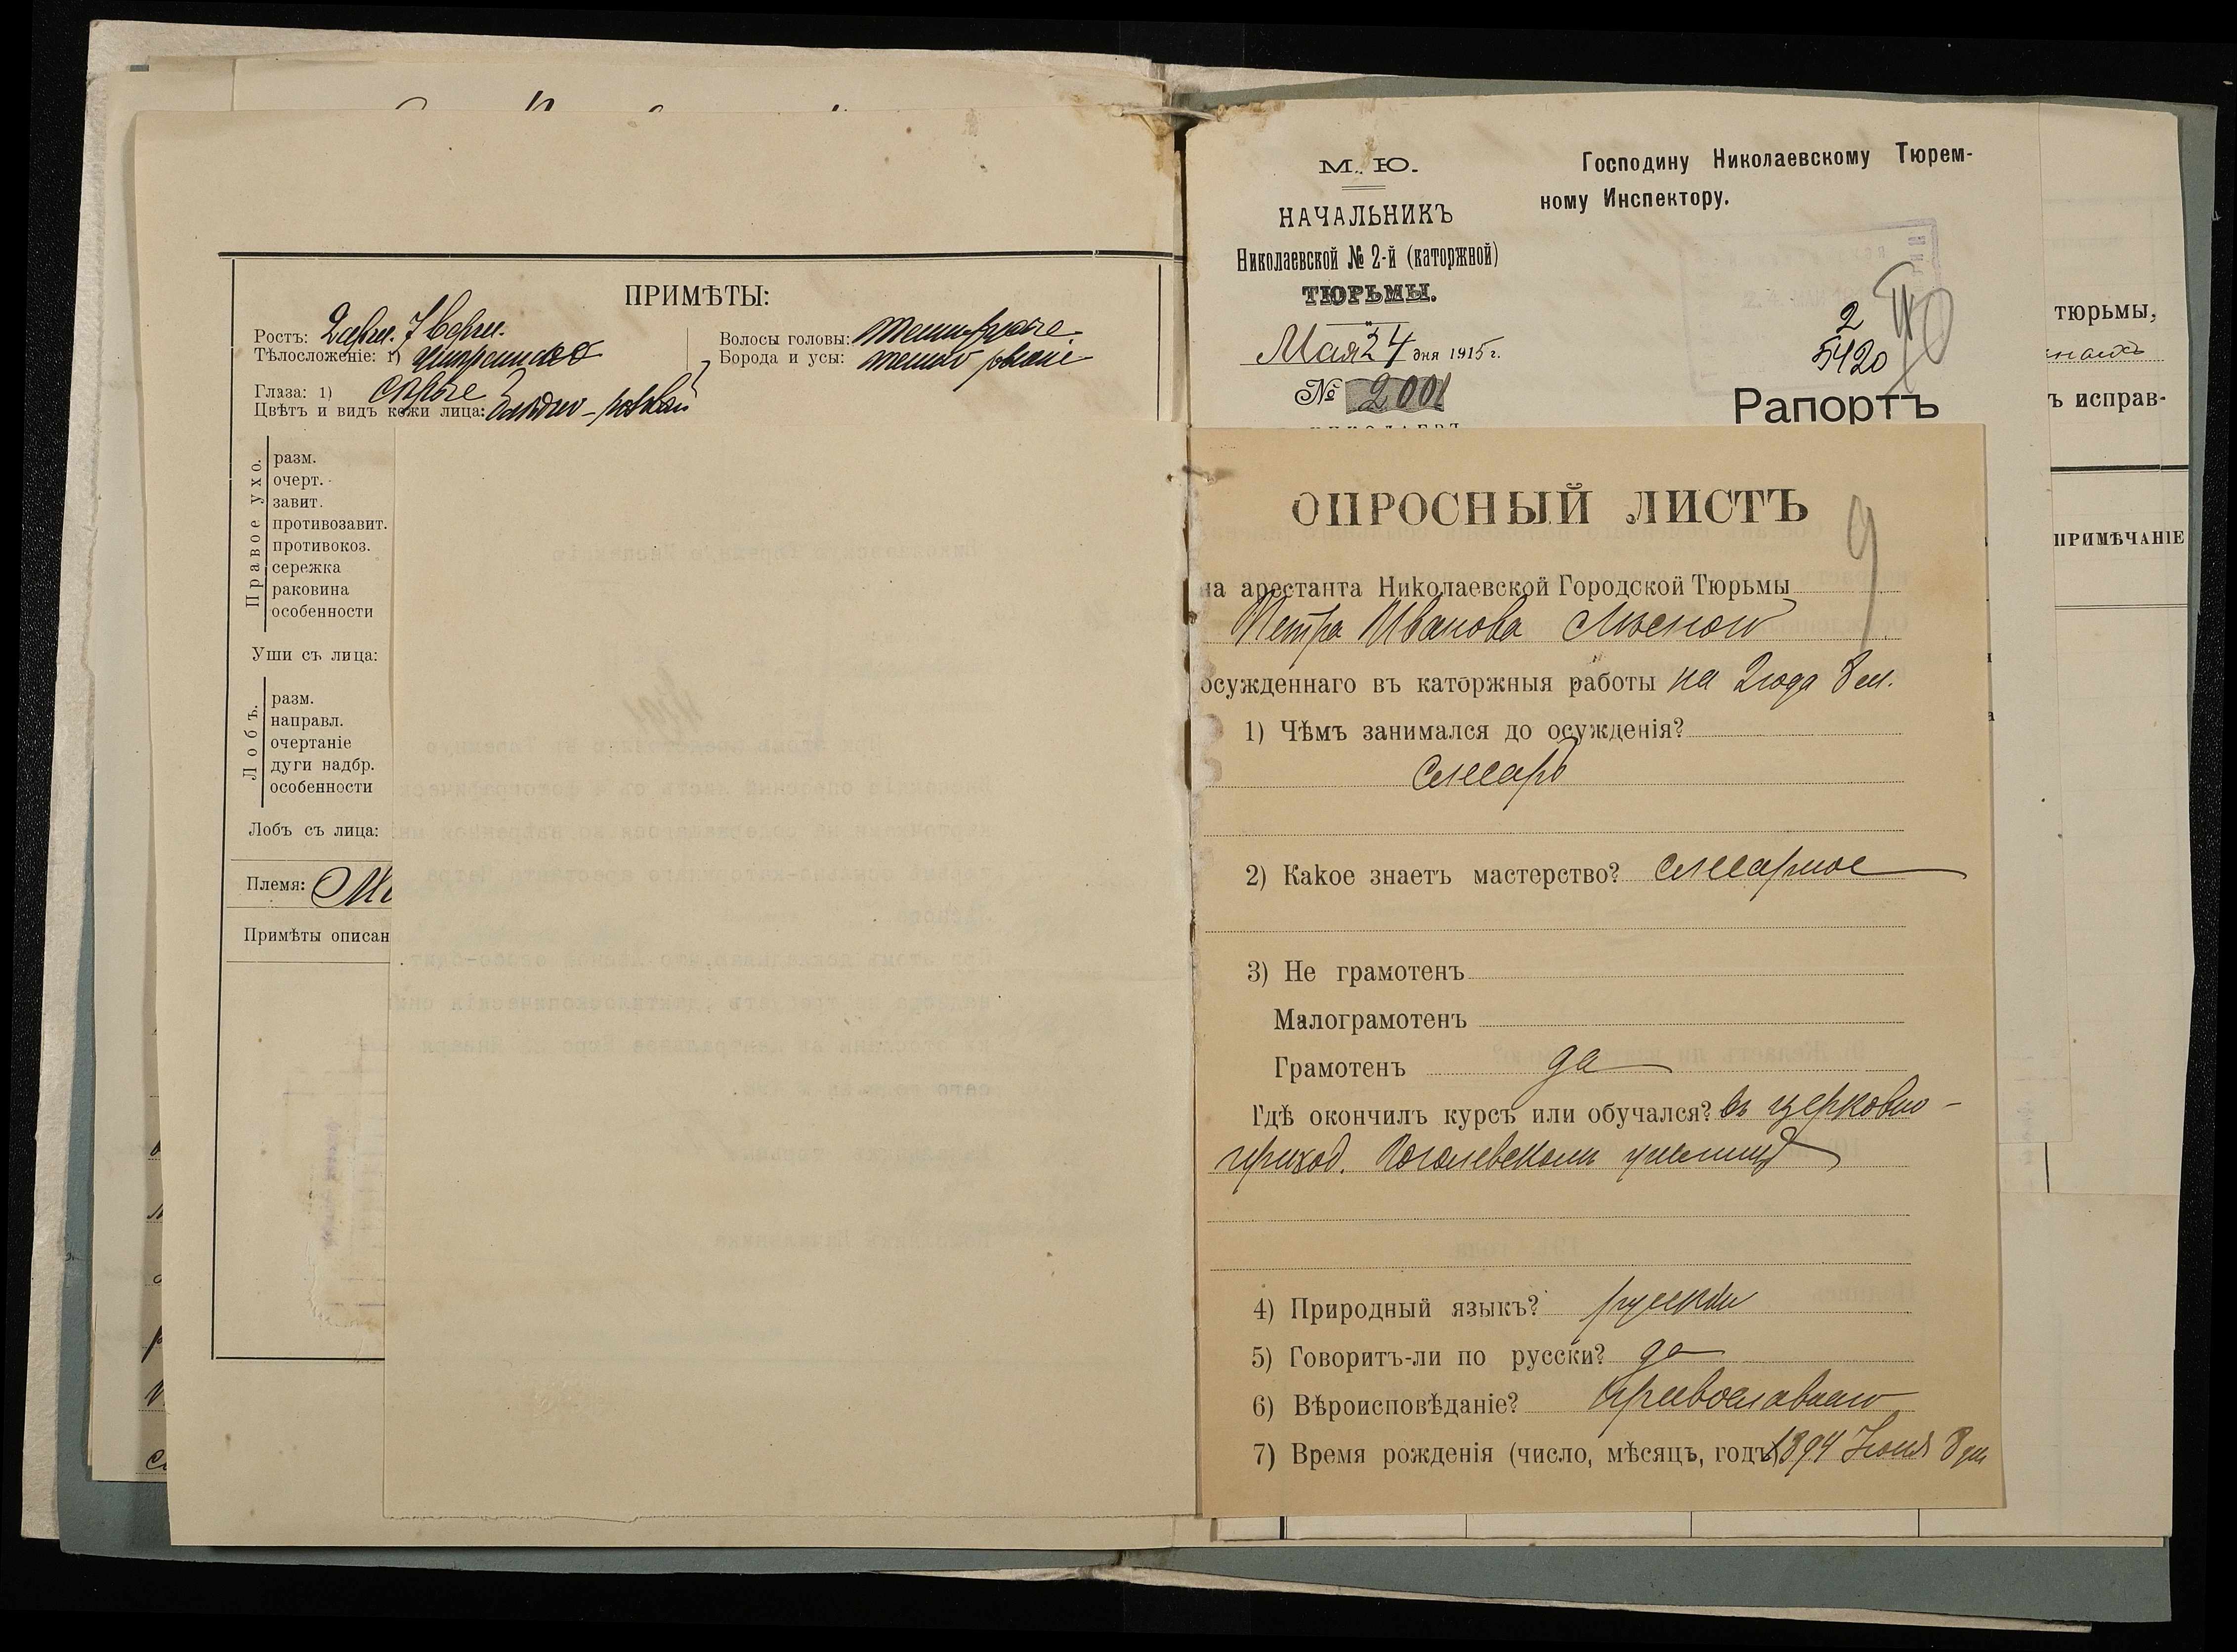 ПРИМѢТЫ:
Ростъ: 2 арш. 7 верш.
Тѣлосложеніе: 1)
Глаза: 1) сѣрые
Цвѣтъ и видъ кожи лица: блѣдно-розовый
Волосы головы: темнорусые
Борода и усы: темно русые
Правое ухо.
разм.
очерт.
завит.
противозавит.
противокоз.
сережка
раковина
особенности
Уши съ лица:
Лобъ.
разм.
направл.
очертаніе
дуги надбр.
особенности
Лобъ съ лица:
Племя:
Примѣты описан
М. Ю.
НАЧАЛЬНИКЪ
Николаевской № 2-й (каторжной)
ТЮРЬМЫ.
Мая 24 дня 1915 г.
№ 2001
Господину Николаевскому Тюрем-
ному Инспектору.
2
5420
Рапортъ
тюрьмы,
ъ исправ-
ПРИМѢЧАНІЕ
ОПРОСНЫЙ ЛИСТЪ
9
на арестанта Николаевской Городской Тюрьмы
Петра Иванова
осужденнаго въ каторжныя работы на 2 года 8 м.
1) Чѣмъ занимался до осужденія?
слесарь
2) Какое знаетъ мастерство? слесарное
3) Не грамотенъ
Малограмотенъ
Грамотенъ да
Гдѣ окончилъ курсъ или обучался? въ церковно-
приход. училищѣ
4) Природный языкъ? русскій
5) Говоритъ-ли по русски? да
6) Вѣроисповѣданіе? православнаго
7) Время рожденія (число, мѣсяцъ, годъ) 1894 Іюня 8 дня